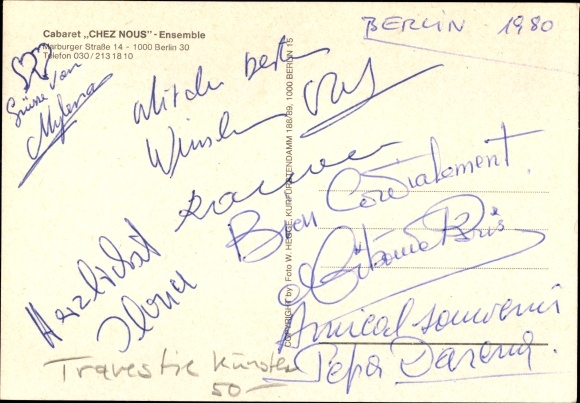 Cabaret „CHEZ NOUS"-Ensemble
Marburger Straße 14 - 1000 Berlin 30
Telefon 030/213 18 10
BERLIN 1980
Grüsse von
Mylena
Mit den besten
Wünschen
Ramona
Bien Cordialement.
Paris
Herzlichst
Ilona
Amical souvenir
Pepa Darena.
Travestie Künstler
50-
COPYRIGHT by Foto W. HEGGE, KURFÜRSTENDAMM 188/89, 1000 BERLIN 15